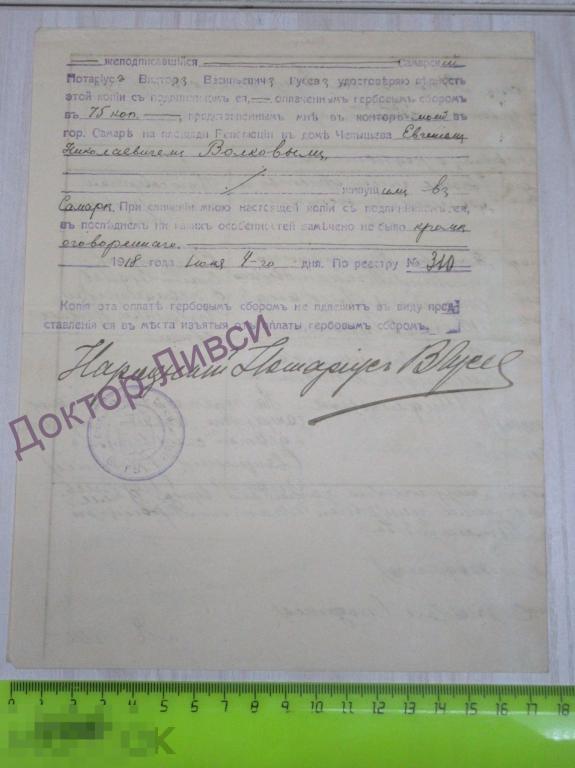 жеподписавшійся Самарскій
Нотаріусъ Викторъ Васильевичъ Гусевъ удостовѣряю вѣрность
этой копіи съ подлинникомъ ея, оплаченнымъ гербовымъ сборомъ
въ 75 коп. представленнымъ мнѣ въ конторѣ моей въ
гор. Самарѣ на площади Революціи въ домѣ Челышева Евгеніемъ
Николаевичемъ Волковымъ,
живущимъ въ
Самарѣ. При сличеніи мною настоящей копіи съ подлинникомъ ея,
въ послѣднемъ никакихъ особенностей замѣчено не было кромѣ
оговореннаго.
1918 года Іюня 4-го дня. По реестру № 310
Копія эта оплатѣ гербовымъ сборомъ не подлежитъ въ виду пред-
ставленія ея въ мѣста изъятыя отъ оплаты гербовымъ сборомъ.
Народный Нотаріусъ ВГусев
Доктор Ливси
0 1 2 3 4 5 6 7 8 9 10 11 12 13 14 15 16 17 18